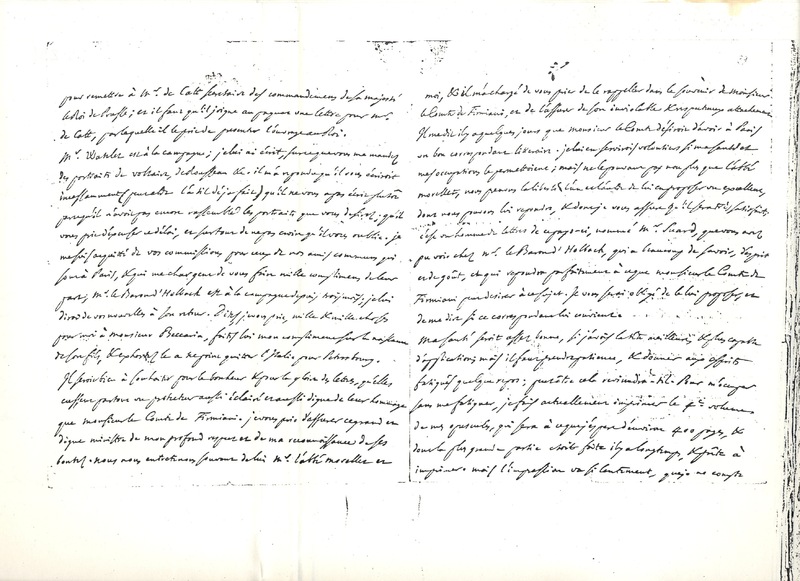 pour remettre à Mr. de Catt secretaire des commandemens de sa majesté
le Roi de Prusse; et il faut qu'il joigne au paquet une lettre pour Mr.
de Catt, par laquelle il le prie de presenter l'ouvrage au Roi.
Mr. Watelet est à la campagne; je lui ai écrit, sur ce que vous me mandez
des portraits de voltaire, de Rousseau &c. il m'a repondu qu'il vous écriroit
incessamment (peut etre l'a t'il deja fait) qu'il ne vous a pas écrit plutôt
parcequ'il n'avoit pas encore rassemblé les portraits que vous desirez; qu'il
vous prie d'excuser ce delai, et surtout de ne pas croire qu'il vous oublie. je
me suis acquitté de vos commissions pour ceux de nos amis communs qui
sont à Paris, & qui me chargent de vous faire mille complimens de leur
part; Mr. le Baron d'Holbach est à la campagne depuis trois mois; je lui
dirai de vos nouvelles à son retour. Dites, je vous prie, mille & mille choses
pour moi à monsieur Beccaria, faites lui mon compliment sur la naissance
de son fils, & exhortez le a ne point quitter l'Italie pour Petersbourg.
Il seroit à souhaiter pour le bonheur & pour la gloire des lettres, qu'elles
eussent partout un protecteur aussi éclairé et aussi digne de leur hommage
que monsieur le Comte de Firmiani. je vous prie d'assurer ce grand et
digne ministre de mon profond respect et de ma reconnoissance de ses
bontés. nous nous entretenons souvent de lui Mr. l'abbé morellet et
moi, & il m'a chargé de vous prier de le rappeller dans le souvenir de monsieur
le Comte de Firmiani, et de l'assurer de son inviolable & respectueux attachement.
Il me dit il y a quelques jours que monsieur le Comte désiroit d'avoir à Paris
un bon correspondant literaire. je lui en servirois volontiers si ma santé et
mes occupations le permettoient; mais ne le pouvant pas non plus que l'abbé
morellet, nous pensons la liberté l'un et l'autre de lui en proposer un excellent,
dont nous pouvons lui repondre, & dont je vous assure qu'il seroit très satisfait.
c'est un homme de lettres de ce pays-ci, nommé Mr. Suard, que vous avez
pu voir chez Mr. le Baron d'Holbach, qui a beaucoup de savoir, d'esprit
et de goût, et qui repondra parfaitement à ce que monsieur le Comte de
Firmiani peut desirer à ce sujet. Je vous serai obligé de le lui proposer, et
de me dire si ce correspondant lui convient.
Ma santé seroit assez bonne, si j'avois la tête meilleure, & plus capable
d'application; mais il faut prendre patience, & donner aux esprits
fatigués quelque repos; peut être cela reviendra-t-il. Pour m'occuper
sans me fatiguer, je fais actuellement imprimer le 4e volume
de mes opuscules, qui sera à ce que j'espere d'environ 400 pages, &
dont la plus grande partie etoit faite il y a longtemps, & prête à
imprimer. mais l'impression va si lentement, que je ne compte